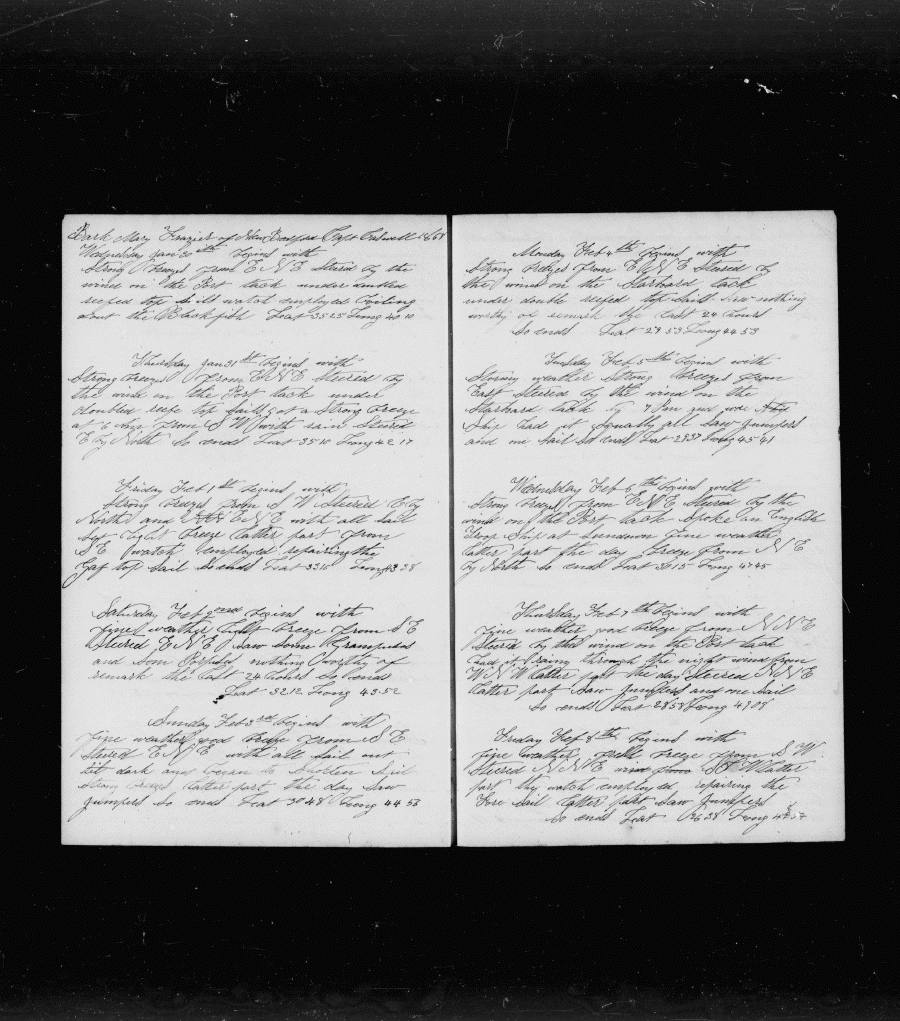 Bark Mary Frazier of New Bedford Capt
Wednesday Jan 30th begins with
Strong breezes from E N E Steared by the
wind on the Port tack under
reefed top sails watch employed Coiling
down the Blackfish Leat 35 25 Long 40 10
Thursday Jan 31st begins with
Strong breezes from E N E Steared by
the wind on the Port tack under
doubled reefe top sails got a Strong breeze
at 6 from S W with rain Steared
E by North So ends Leat 35 10 Long 42 17
Friday Feb 1st begins with
Strong breezes from S W Steared E by
North and E N E with all sail
set light breeze latter part from
S E watch employed repairing the
Gaf top sail So ends Leat 33 15 Long 43 38
Saturday Feb 2nd begins with
fine weather light breeze from S E
Steared E N E Saw Some Grampuses
and som nothing worthy of
remark the last 24 hours So ends
Leat 32 12 Long 43 52
Sunday Feb 3rd begins with
fine weather good breeze from S E
Steared E N E with all sail out
till dark and began to Shorten Sail
strong breeze latter part the day Saw
jumpers So ends Leat 30 48 Long 44 53
Monday Feb 4th begins with
Strong breezes from E N E Steared by
the wind on the Starbard tack
under double reefed top Sails Saw nothing
worthy of remark the last 24 hours
So ends Leat 29 53 Long 44 53
Tuesday Feb 5th begins with
Stormy weather Strong breezes from
East Steared by the wind on the
Starbard tack
Ship had it Squally all Saw jumpers
and one Sail So ends Leat 29 37 Long 45 41
Wednesday Feb 6th begins with
Strong breezes from E N E Steared by the
wind on the Port tack Spoke an English
Troop Ship at Sundown fine weather
latter part the day breeze from N E
by North So ends Leat 30 15 Long 47 45
Thursday Feb 7th begins with
fine weather good breeze from N N E
Steared by the wind on the Port tack
had it rainy through the night wind from
W N W latter part the day Steared N N E
latter part Saw jumpers and one Sail
So ends Leat 28 58 Long 47 08
Friday Feb 8th begins with
fine weather fresh breeze from S W
Steared N N E wind from latter
part the watch employed repairing the
Fore Sail latter part Saw jumpers
So ends Leat 26 38 Long